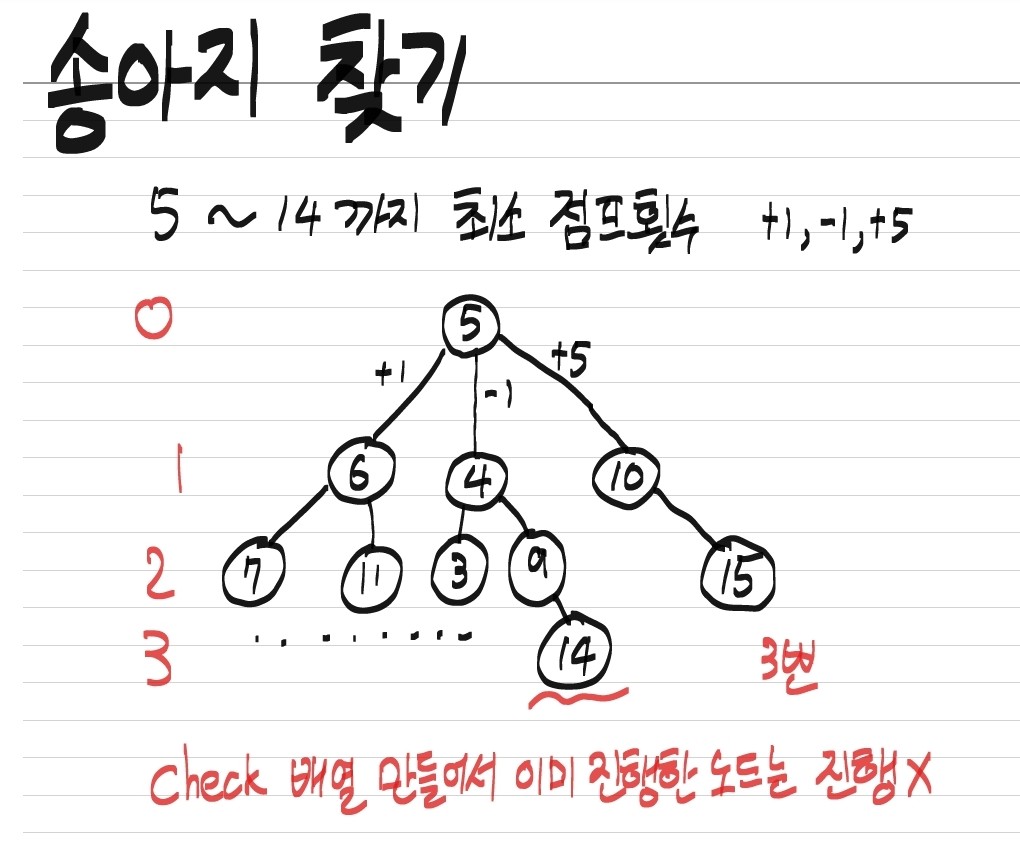 송아지 찾기
5 ~ 14까지 최소 점프횟수 +1, -1, +5
0 5
+1 -1 +5
1 6 4 10
2 7 11 3 9 15
3 ........ 14 3번
Check 배열 만들어서 이미 진행한 노드는 진행X